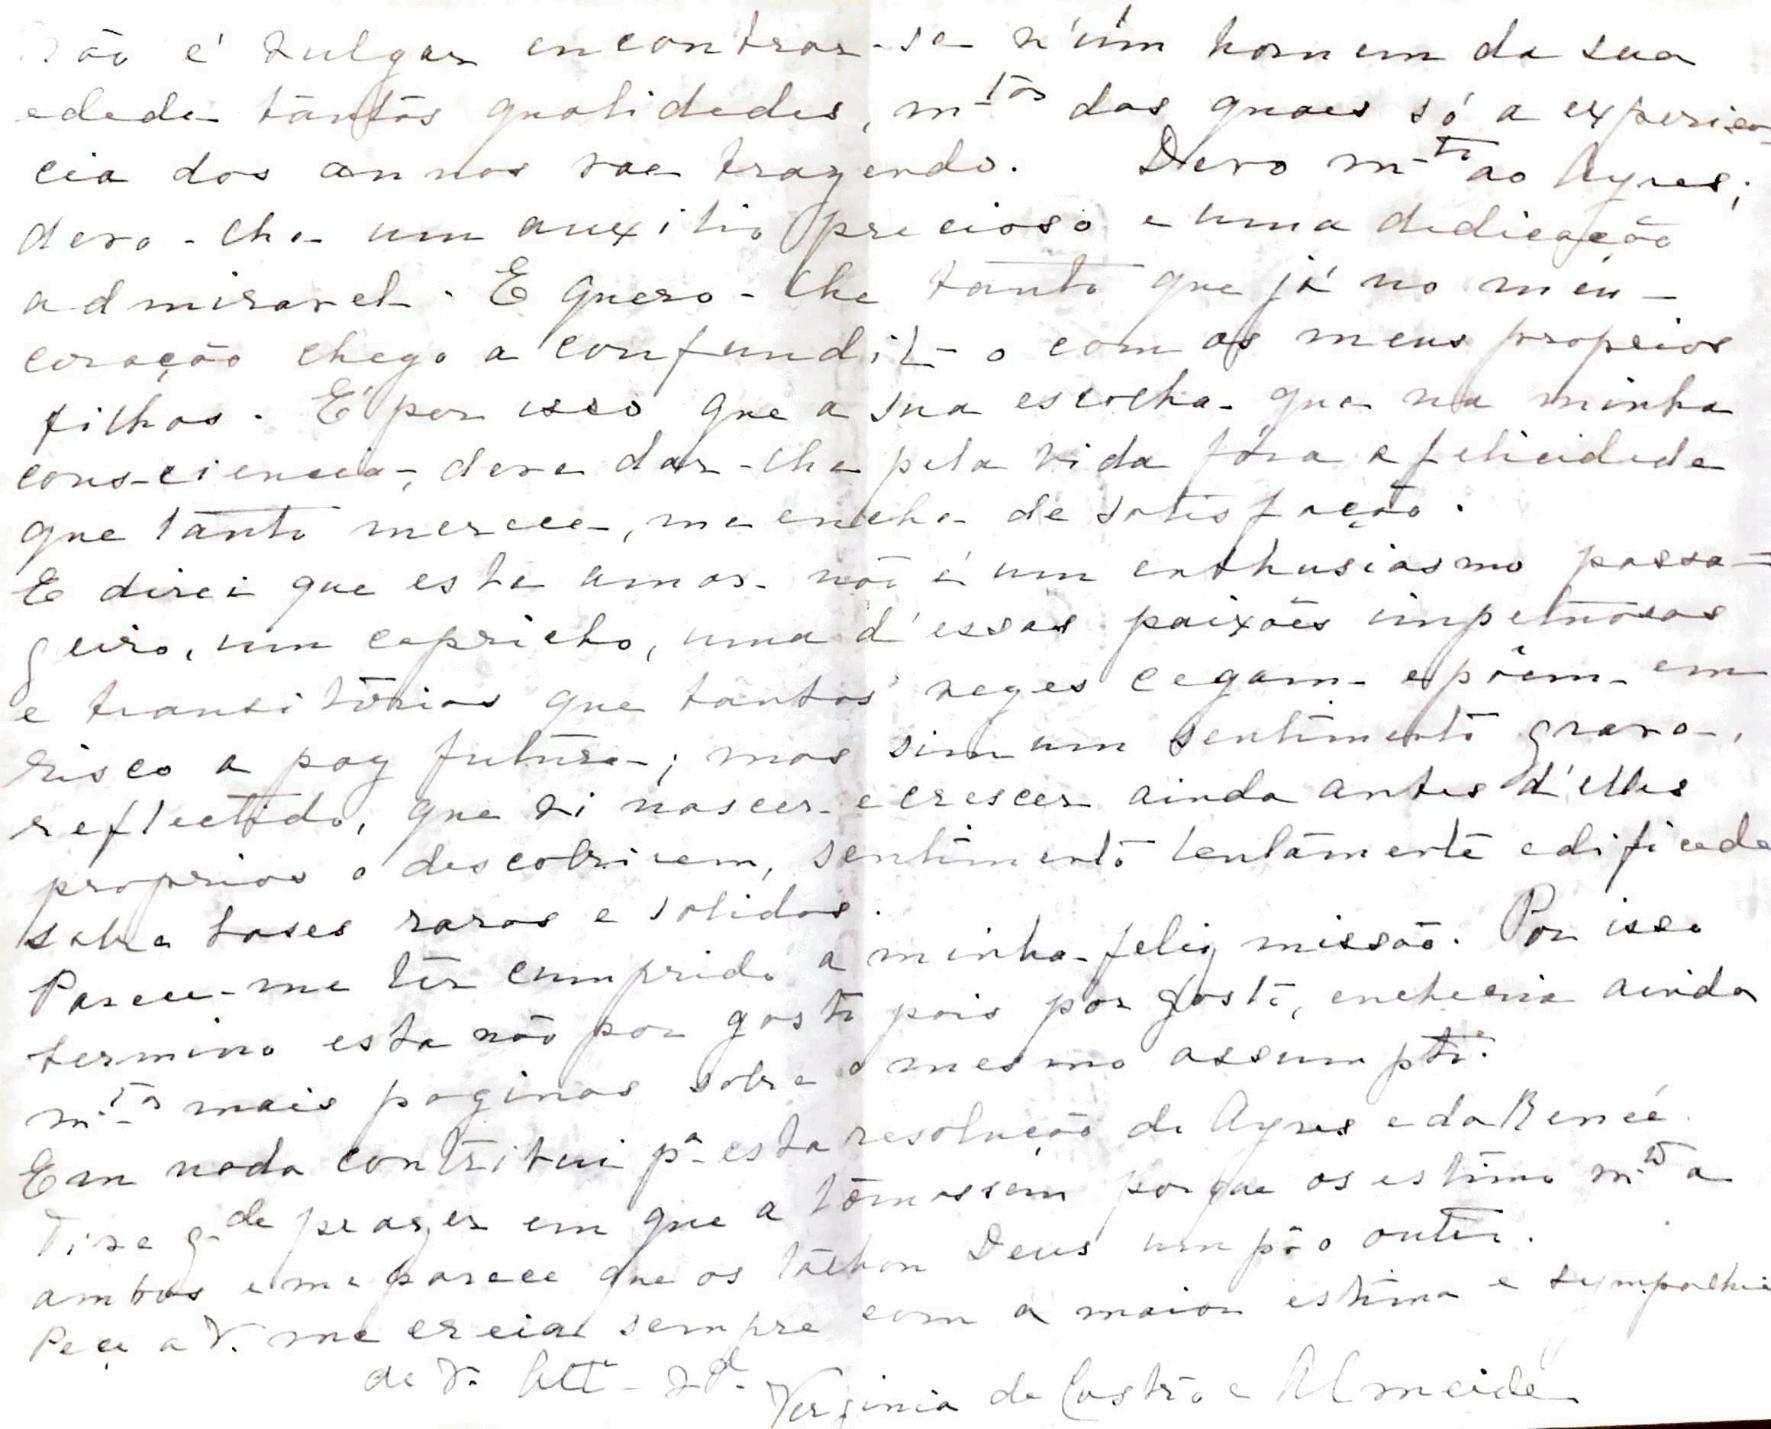 Não é vulgar encontrar-se n'um homem da sua
edade tantas qualidades, mtas das quaes só a experien-
cia dos annos vae trazendo. Devo mto ao Ayres;
devo-lhe um auxilio precioso e uma dedicação
admiravel. E quero-lhe tanto que já no meu
coração chego a confundil-o com os meus proprios
filhos. É por isso que a sua escolha que na minha
consciencia, deve dar-lhe pela vida fóra a felicidade
que tanto merece, me enche de satisfação.
E direi que este amor não é um enthusiasmo passa=
geiro, um capricho, uma d'essas paixões impetuosas
e transitórias que tantas vezes cegam e põem em
risco a paz futura; mas sim um sentimento grave,
reflectido, que vi nascer e crescer ainda antes d'elles
proprios o descobrirem, sentimento lentamente edificado
sobre bases raras e solidas.
Parece-me ter cumprido a minha feliz missão. Por isso
termino esta não por gosto pois por gosto, encheria ainda
mtas mais paginas sobre o mesmo assumpto.
Em nada contribui pa esta resolução do Ayres e da Renée.
Tive gde prazer em que a tomassem porque os estimo mto a
ambos e me parece que os talhou Deus um pa o outro.
Peço a V. me creia sempre com a maior estima e sympathia
de V. Atta Vda.
Virginia de Castro e Almeida